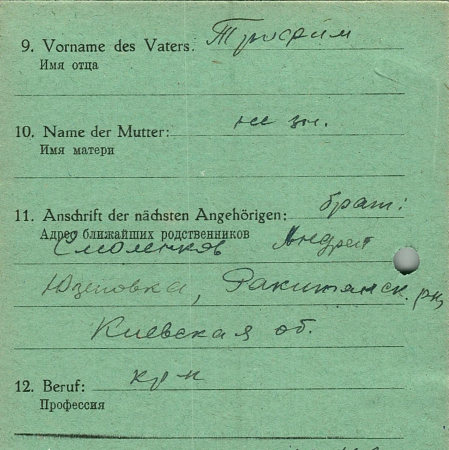 9. Vorname des Vaters. Трифин
Имя отца
10. Name der Mutter: не зн.
Имя матери
11. Anschrift der nächsten Angehörigen: брат:
Адрес ближайших родственников
Смоленков Андрей
Юзеповка, Ракитянск. рн,
Киевская об.
12. Beruf: кр н
Профессия